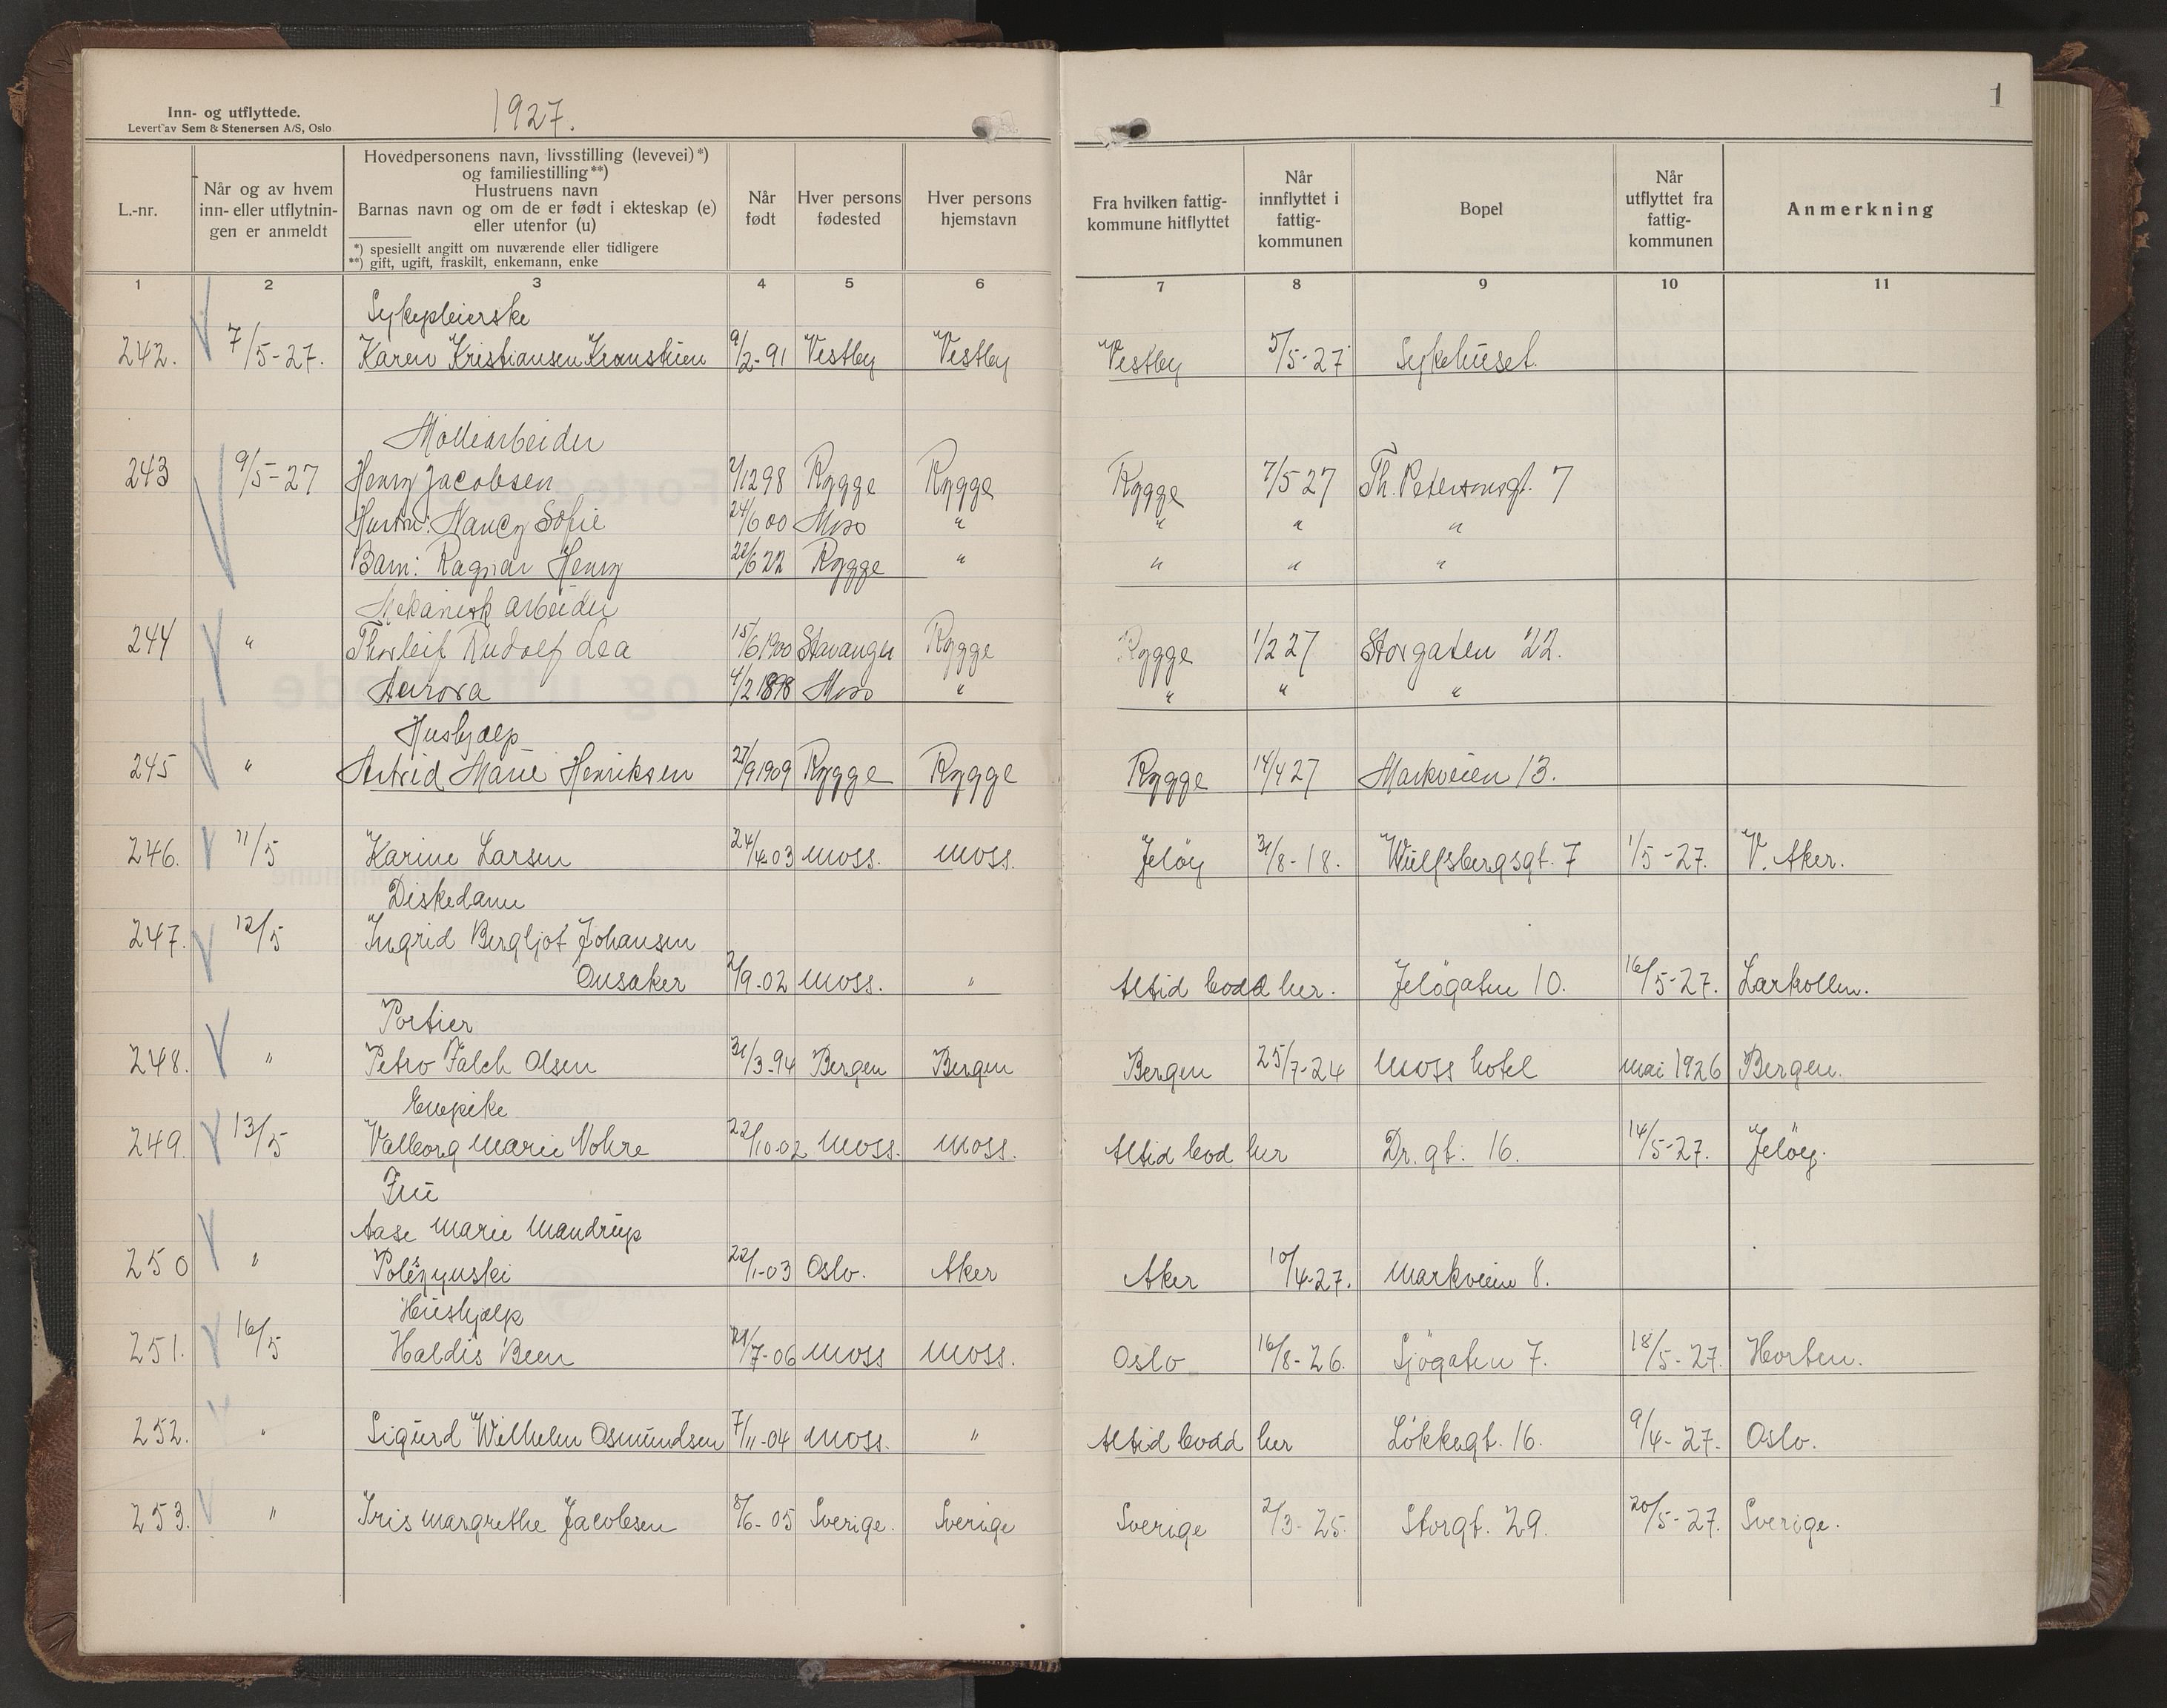 Inn- og utflyttede.
Levert av Sem & Stenersen A/S, Oslo
1927.
1
L.-nr.
Når og av hvem inn- eller utflytnin- gen er anmeldt
Hovedpersonens navn, livsstilling (levevei) *)
og familiestilling **)
Hustruens navn
Barnas navn og om de er født i ekteskap (e)
eller utenfor (u)
*) spesiellt angitt om nuværende eller tidligere
**) gift, ugift, fraskilt, enkemann, enke
Når født
Hver persons fødested
Hver persons hjemstavn
Fra hvilken fattig- kommune hitflyttet
Når innflyttet i fattig- kommunen
Bopel
Når utflyttet fra fattig- kommunen
Anmerkning
1 2 3 4 5 6 7 8 9 10 11
Sykepleierske
242. 7/5-27. Karen Kristiansen 9/2-91 Vestby Vestby Vestby 5/5-27 Sykehuset.
Möllearbeider
243 9/5-27 Henry Jacobsen Rygge Rygge Rygge 7/5 27 Th. Petersonsgt. 7
Hustru: Nancy Sofie 24/6 00 Moss " " " "
Barn: Ragnar Henry 22/6 22 Rygge " " " "
Mekanisk arbeider
244 " Thorleif Rudolf Lea 15/6 1900 Stavanger Rygge Rygge 1/2 27 Storgaten 22.
Aurora 4/2 1898 Moss " " " "
Hushjælp
245 " Astrid Marie Henriksen 27/9 1909 Rygge Rygge Rygge 14/4 27 Markveien 13.
246. 11/5 Karine Larsen 24/4-03 Moss. Moss. Jeløy 31/8-18. Wulfsbergsgt. 7 1/5-27. V. Aker.
Diskedame
247. 12/5 Ingrid Bergljot Johansen
Onsaker 2/9-02 Moss. " Altid bodd her. Jeløgaten 10. 16/5-27. Larkollen.
Portier
248. " Petro Falch Olsen 31/3-94 Bergen Bergen Bergen 25/7-24 Moss hotel mai 1926 Bergen.
Enepike
249. 13/5 Valborg Marie Nohre 22/10-02 Moss. Moss. Altid bod her Dr. gt. 16. 14/5-27. Jeløy.
Frü
Aase Marie Mandrup
250 " 22/1-03 Oslo. Aker Aker 10/4-27. Markveien 8.
Hushjælp
251. 16/5 Haldis Been 21/7-06 Moss Moss. Oslo 16/8-26. Sjøgaten 7. 18/5-27. Horten.
252. " Sigurd Wilhelm Osmundsen 7/11-04 Moss. " Altid bodd her Løkkegt. 16. 9/4-27. Oslo.
253. " Iris Margrethe Jacobsen 8/6-05 Sverige. Sverige Sverige 2/3-25. Storgt. 29. 20/5-27. Sverige.